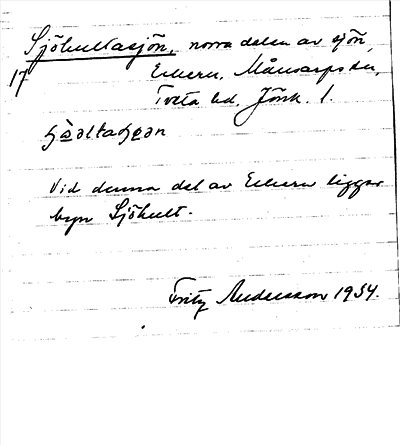 Sjöhultasjön, norra delen av sjön
17 Eckern, Månsarps sn,
Tveta hd, Jönk. l.
Vid denna del av Eckern ligger
byn Sjöhult.
Fritz Andersson 1934.